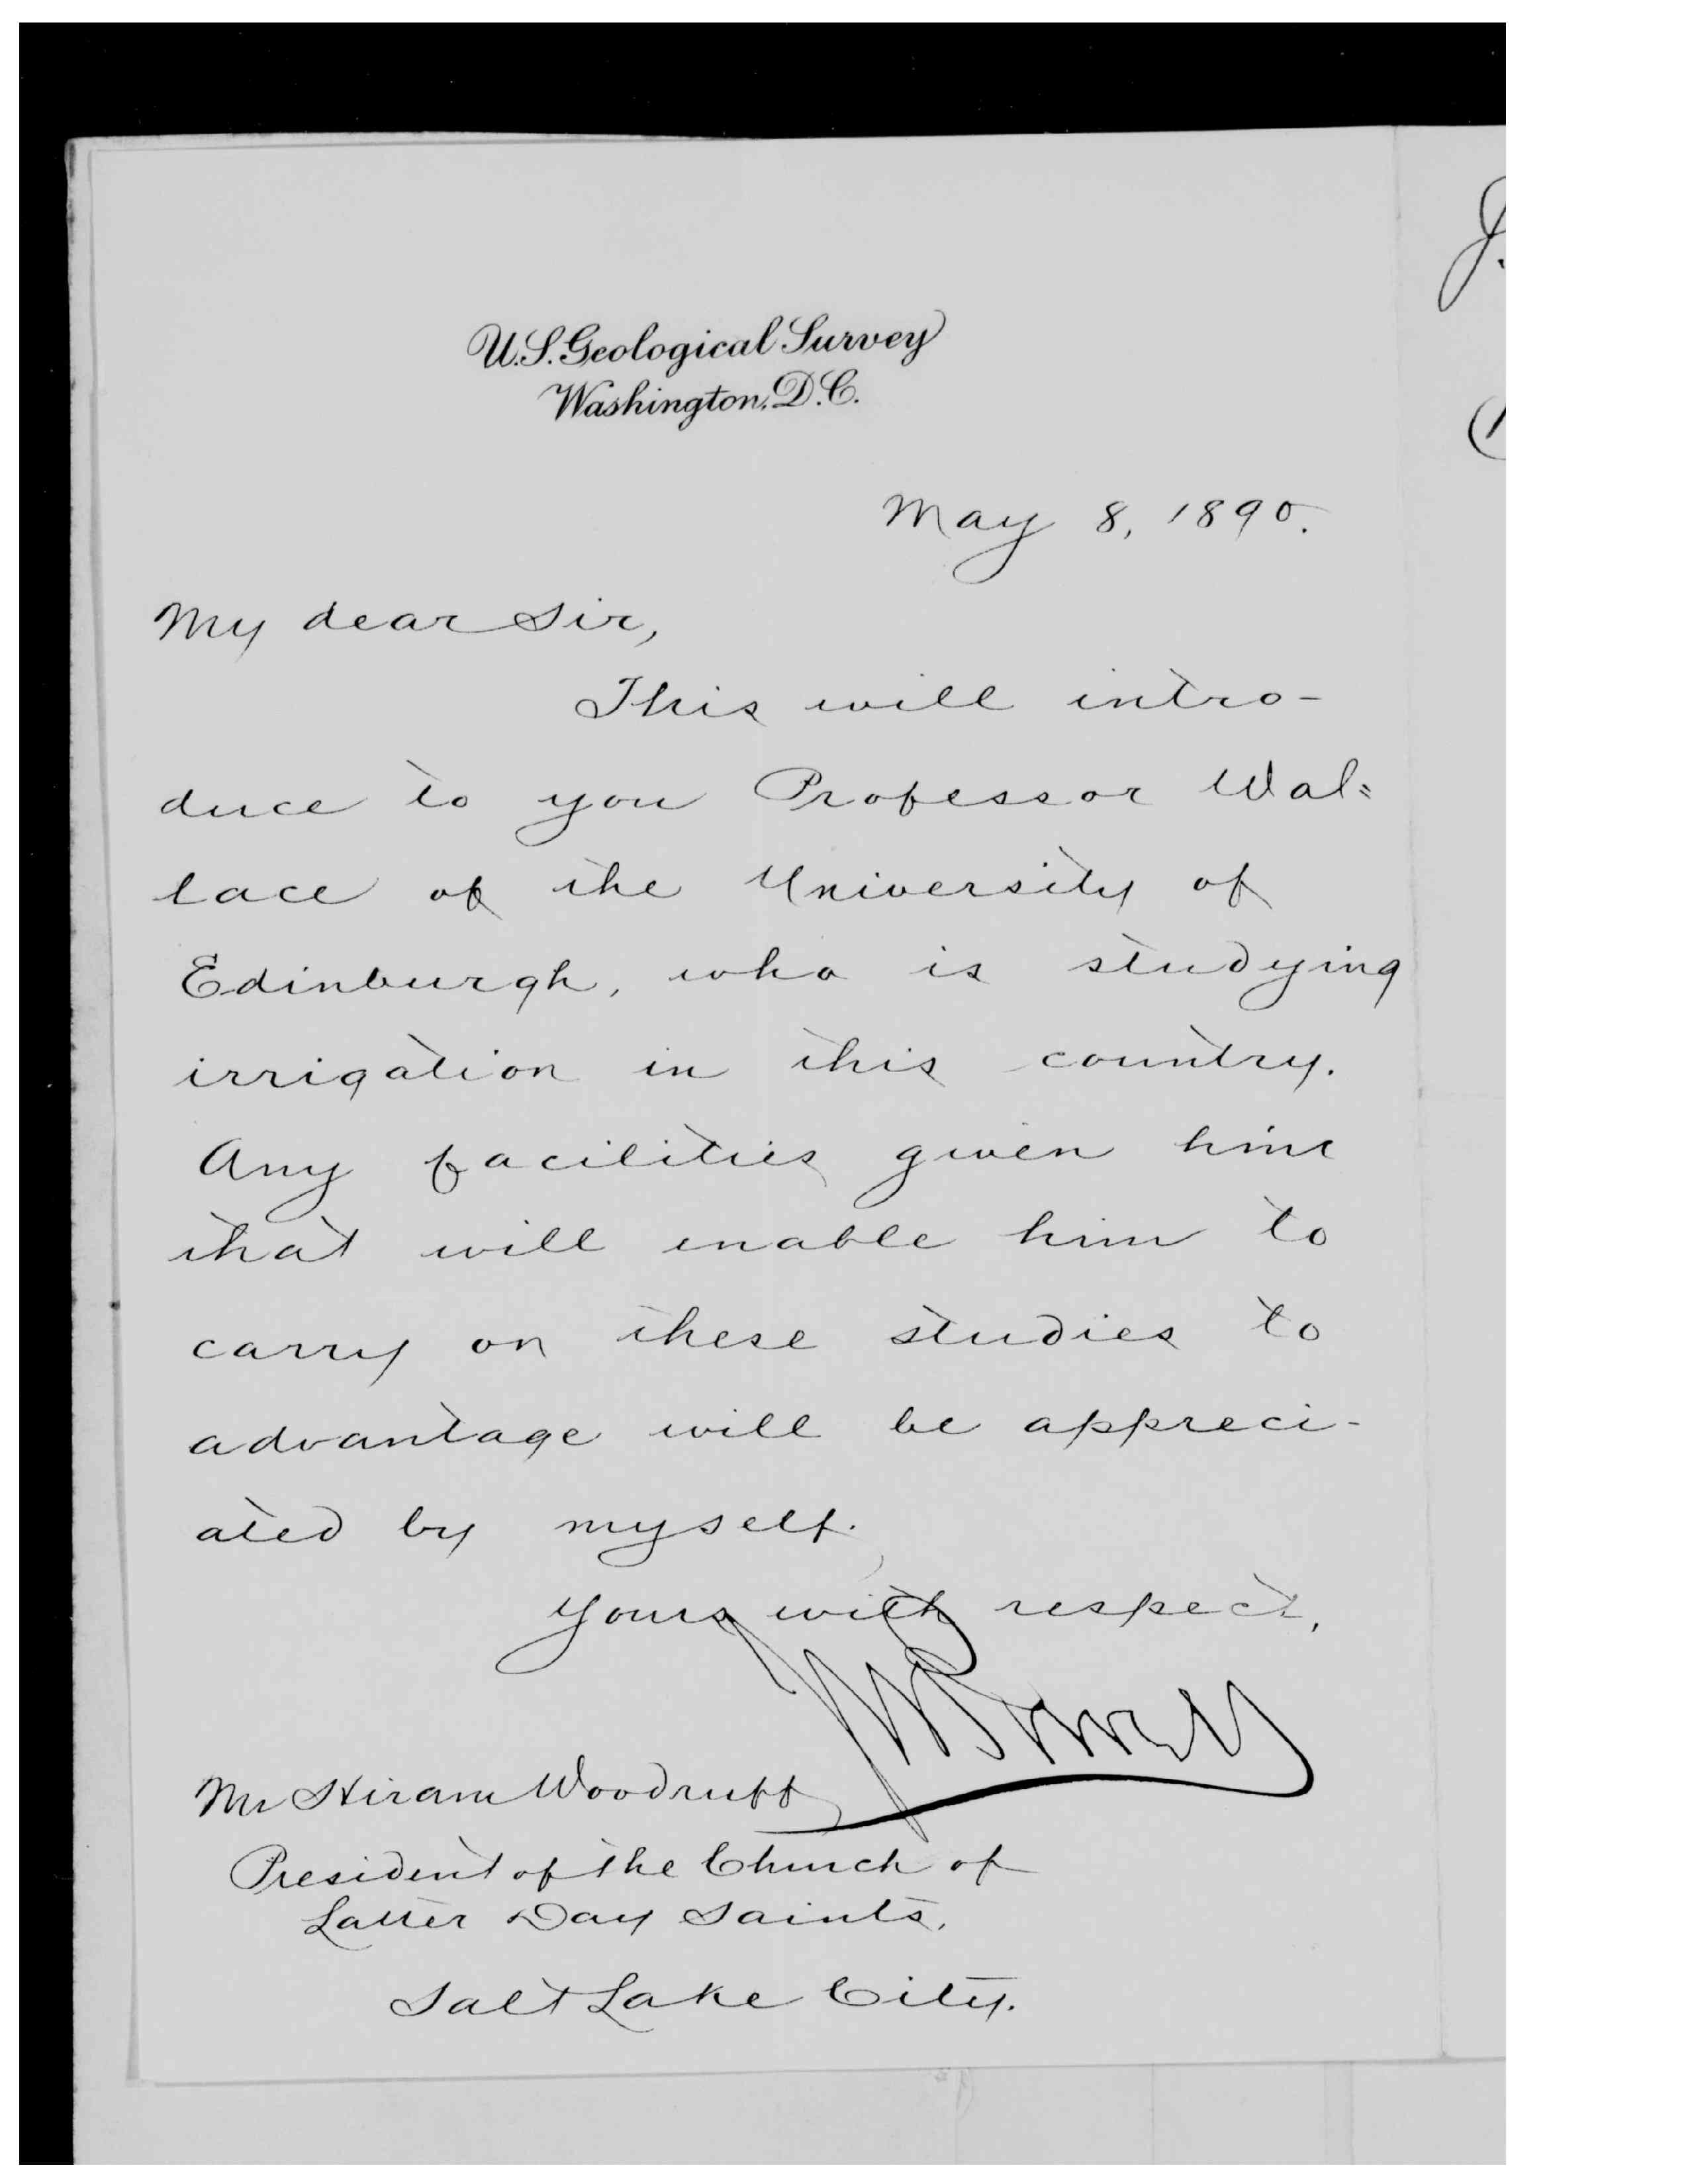 U.S. Geological Survey
Washington, D.C.
May 8, 1890.
My dear Sir,
This will intro-
duce to you Professor Wal=
lace of the University of
Edinburgh, who is studying
irrigation in this country.
Any facilities given him
that will enable him to
carry on these studies to
advantage will be appreci-
ated by myself.
Yours with respect,
J W Powell
Mr Hiram Woodruff
President of the Church of
Latter Day Saints,
Salt Lake City.
J.
(1